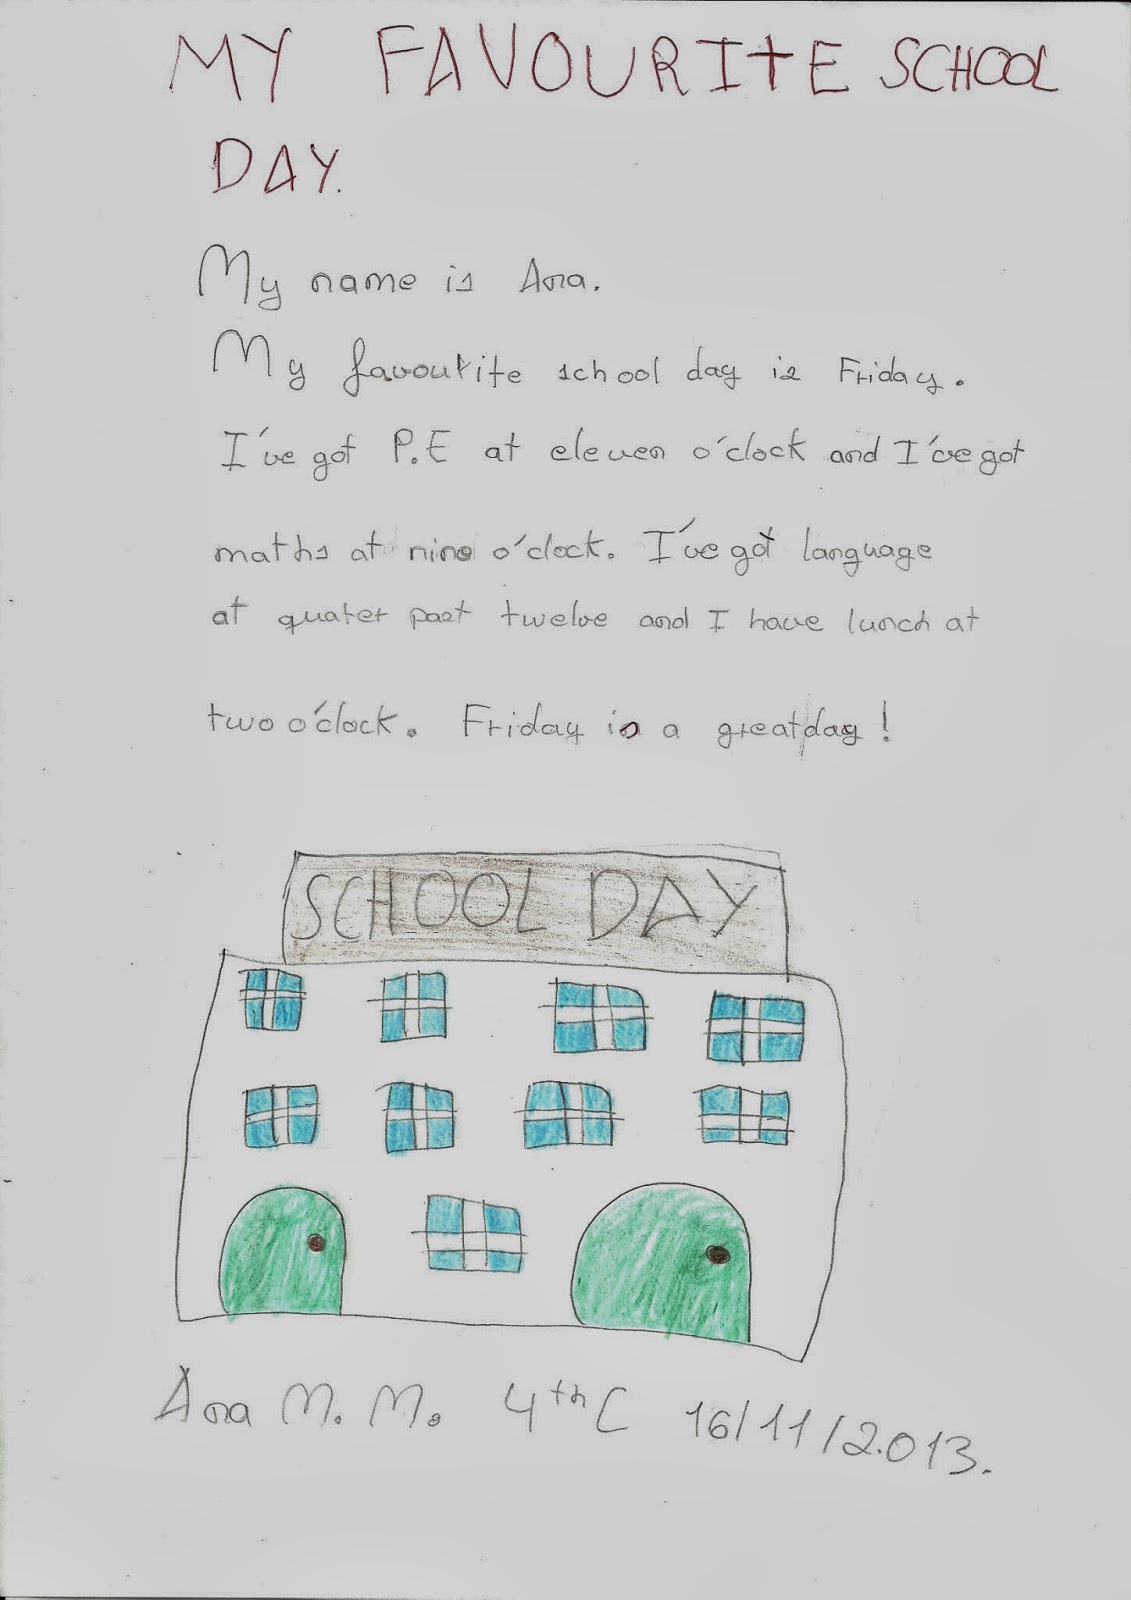 MY FAVOURITE SCHOOL
DAY.
My name is Ana.
My favourite school day is Friday.
I've got P.E at eleven o'clock and I've got
maths at nine o'clock. I've got language
at quater past twelve and I have lunch at
two o'clock. Friday is a great day!
SCHOOL DAY
Ana M. M. 4th C 16/11/2.013.